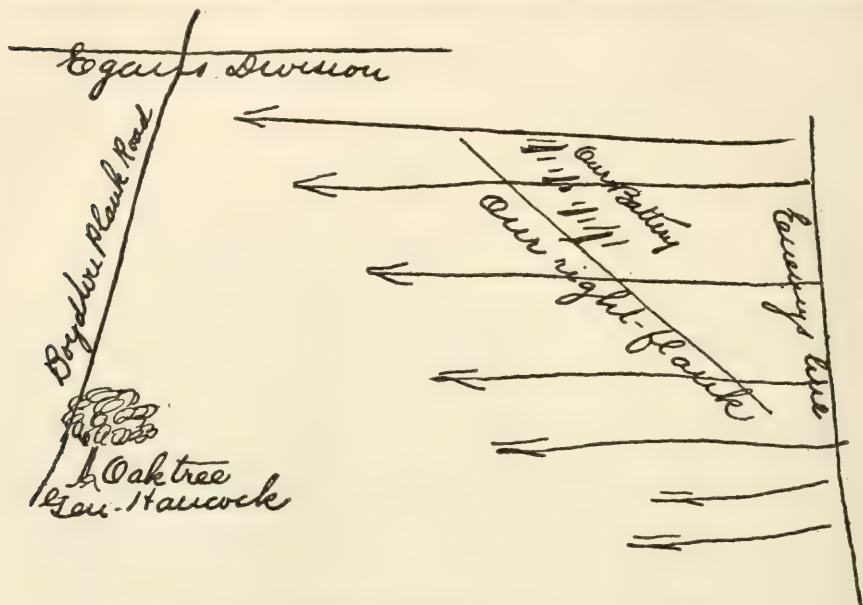 Egans Division
Boydton Plank Road
Our Battery
Our right-flank
Enemys line
Oak tree
Gen. Hancock